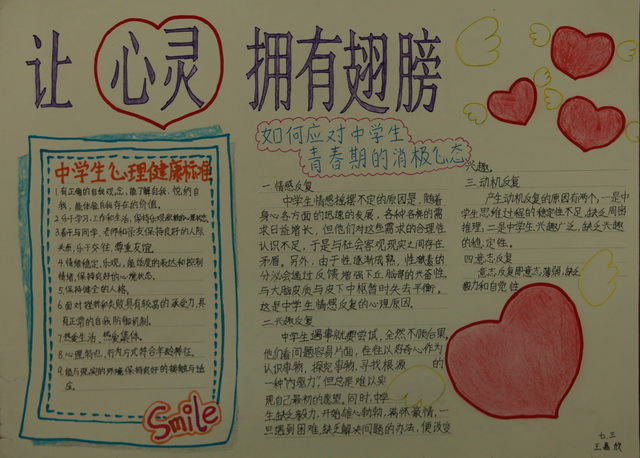 让心灵拥有翅膀
中学生心理健康标准
1.有正确的自我观念,能了解自我,悦纳自
我,能体验自我存在的价值。
2.乐于学习、工作和生活,保持乐观积极的心理状态。
3.善于与同学、老师和亲友保持良好的人际
关系,乐于交往,尊重友谊。
4.情绪稳定、乐观,能适度的表达和控制
情绪,保持良好的心境状态。
5.保持健全的人格。
6.面对挫折和失败具有较高的承受力,具
有正常的自我防御机制。
7.热爱生活、热爱集体。
8.心理特点、行为方式符合年龄特征。
9.能与现实的环境保持良好的接触与适
应。
Smile
如何应对中学生
青春期的消极心态
一.情感反复
中学生情感摇摆不定的原因是,随着
身心各方面的迅速的发展,各种各样的需
求日益增长,但他们对这些需求的合理性
认识不足,于是与社会客观现实之间存在
矛盾。另外,由于性逐渐成熟,性激素的
分泌会通过反馈增强下丘脑部的兴奋性,
与大脑皮质与皮下中枢暂时失去平衡。
这是中学生情感反复的心理原因。
二.兴趣反复
中学生遇事就要尝试,全然不顾后果,
他们看问题容易片面,往往以好奇心作为
认识事物,探究事物,寻找根源的
一种“内驱力”。但总是难以实
现自己最初的愿望。同时,中学
生缺乏毅力,开始雄心勃勃,满怀豪情,一
旦遇到困难,缺乏解决问题的办法,便改变
兴趣。
三.动机反复
产生动机反复的原因有两个,一是中
学生思维过程的稳定性不足,缺乏周密
推理;二是中学生兴趣广泛,缺乏兴趣
的稳定性。
四.意志反复
意志反复即意志薄弱,缺乏
毅力和自觉性
七.三
王嘉